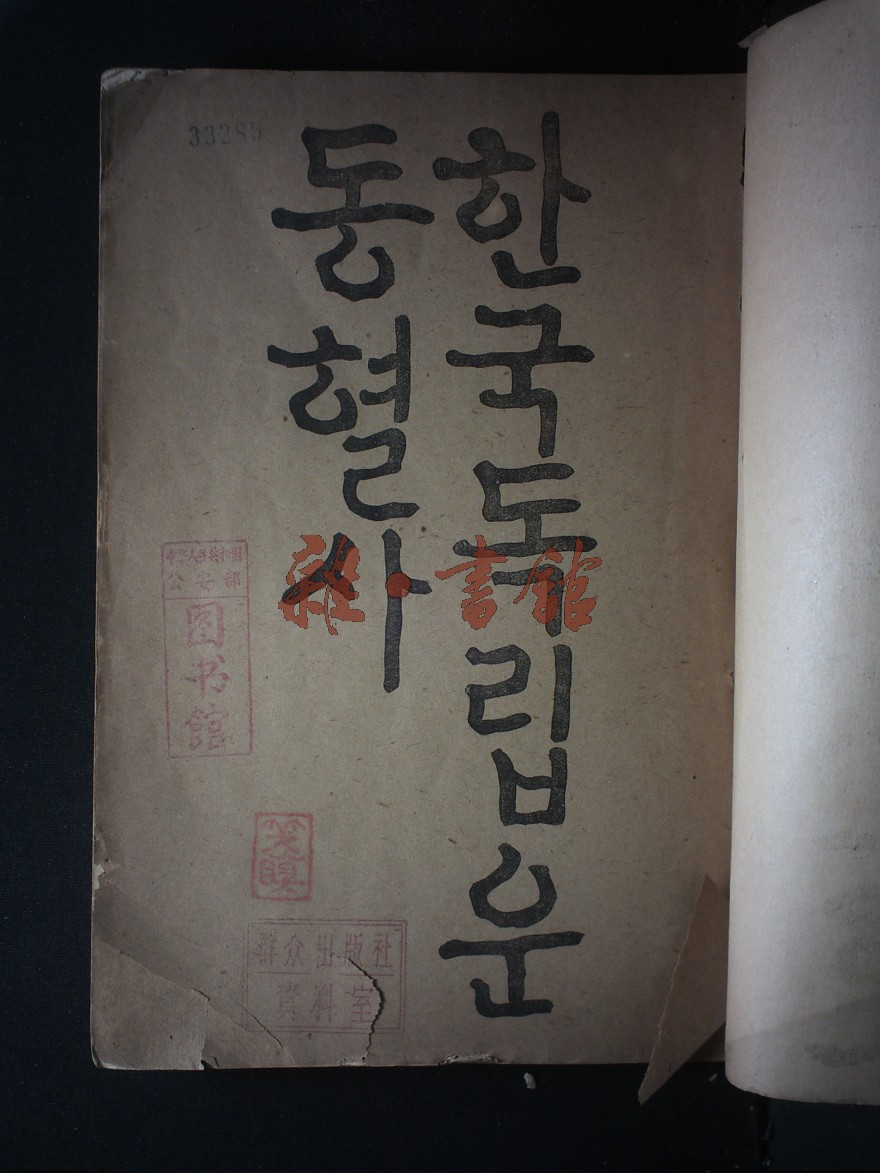 한국독립운
동혈사
33285
中华人民共和国
公安部
图书馆
群众出版社
資料室
雜·書館